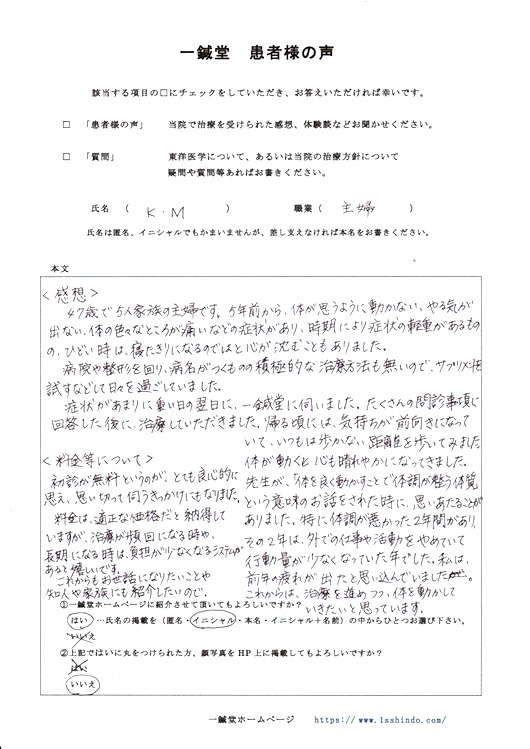 一鍼堂　患者様の声
該当する項目の□にチェックをしていただき、お答えいただければ幸いです。
□　「患者様の声」　　当院で治療を受けられた感想、体験談などお聞かせください。
□　「質問」　　東洋医学について、あるいは当院の治療方針について
疑問や質問等あればお書きください。
氏名　（　K・M　）　　職業（　主婦　）
氏名は匿名、イニシャルでもかまいませんが、差し支えなければ本名をお書きください。
本文
＜感想＞
47歳で5人家族の主婦です。5年前から、体が思うように動かない、やる気が
出ない、体の色々なところが痛いなどの症状があり、時期により症状の軽重があるもの
の、ひどい時は、寝たきりになるのではと心が沈むこともありました。
病院や整形を回り、病名がつくものの積極的な治療方法も無いので、サプリメントを
試すなどして日々を過ごしていました。
症状があまりに重い日の翌日に、一鍼堂に伺いました。たくさんの問診事項に
回答した後に、治療していただきました。帰る頃には、気持ちが前向きになって
いて、いつもは歩かない距離を歩いてみました。
体が動くと心も晴れやかになってきました。
先生が、「体を良く動かすことで体調が整う体質」
という意味のお話をされた時に、思いあたることが
ありました。特に体調が悪かった2年間があり、
その2年は、外での仕事や活動をやめていて
行動量が少なくなっていた年でした。私は、
前年の疲れが出たと思い込んでいました。
これからは、治療を進めつつ、体を動かして
いきたいと思っています。
＜料金等について＞
初診が無料というのが、とても良心的に
思え、思い切って伺うきっかけにもなりました。
料金は、適正な価格だと納得して
いますが、治療が頻回になる時や、
長期になる時は、負担が少なくなるシステムが
あると嬉しいです。
これからもお世話になりたいことや
知人や家族にも紹介したいので。
①一鍼堂ホームページに紹介させて頂いてもよろしいですか？
はい　…氏名の掲載を（匿名・イニシャル・本名・イニシャル＋名前）の中からひとつお選び下さい。
いいえ
②上記ではいに丸をつけられた方、顔写真をHP上に掲載してもよろしいですか？
はい
いいえ
一鍼堂ホームページ　　https://www.1sshindo.com/